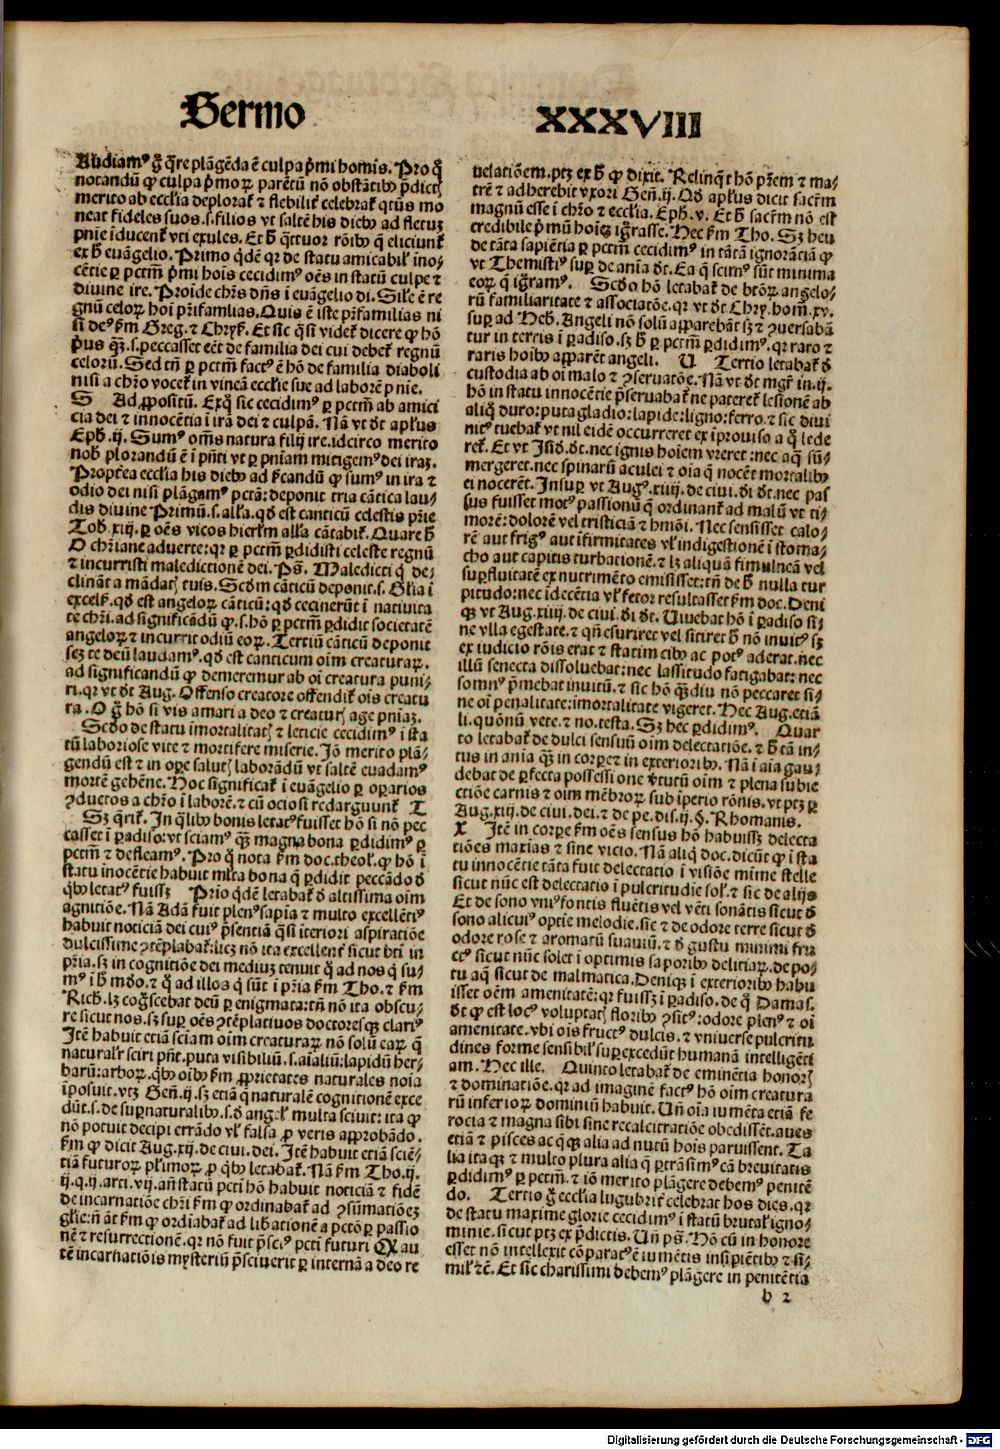 Sermo XXXVIII
Audiamꝰ g̃ q̃re plãgẽda ẽ culpa p̃mi homis. Pro q̃
notandũ ꝙ culpa p̃moꝝ parẽtũ nõ obstãtibꝰ p̃dictꝭ
merito ab ecclia deploraꝷ ⁊ flebiliꝷ celebraꝷ qtũs mo
neat fideles suos .s. filios vt saltẽ his diebꝰ ad fletuꝫ
pnie ĩducenꝷ vti exules. Et h̃ q̃ttuor rõibꝰ q̃ eliciunꝷ
ex h̃ euãgelio. Primo qdẽ qꝛ de statu amicabiꝉ ino⸗
cẽtie ꝑ pctm̃ p̃mi hois cecidimꝰ oẽs in statũ culpe ⁊
diuine ire. Proĩde chr̃s dñs ĩ euãgelio di. Siłe ẽ re
gnũ celoꝝ hoi pr̃ifamilias. Quis ẽ iste pr̃ifamilias ni
si deꝰ ẜm Greg. ⁊ Chryẜ. Et sic q̃si videꝷ dicere ꝙ hõ
p̃us qꝫ̃ .s. peccasset eẽt de familia dei cui debeꝷ regnũ
celorũ. Sed tñ ꝑ pctm̃ factꝰ ẽ hõ de familia diaboli
nisi a chr̃o voceꝷ in vineã ecclie sue ad laborẽ pnie.
S Ad ꝓpositũ. Exq̃ sic cecidimꝰ ꝑ pctm̃ ab amici
cia dei ⁊ innocẽtia ĩ irã dei ⁊ culpã. Nã vt dꝷ apłus
Eph. ij. Sumꝰ om̃s natura filij ire. idcirco merito
nob̃ plorandũ ẽ ĩ pñti vt ꝑ pniam mitigemꝰ dei iraꝫ.
Propꝷea ecclia his diebꝰ ad p̃candũ ꝙ sumꝰ in ira ⁊
odio dei nisi plãgamꝰ pctã: deponit tria cãtica lau⸗
dis diuine Primũ .s. alła. qd̃ est canticũ celestis pr̃ie
Tob. xiij. ꝑ oẽs vicos hierłm alła cãtabiꝷ. Quare h̃
O chr̃iane aduerte: qꝛ ꝑ pctm̃ ꝑdidisti celeste regnũ
⁊ incurristi maledictionẽ dei. Ps̃. Maledicti q̃ de⸗
clinãt a mãdatꝭ tuis. Scd̃m cãticũ deponit .s. Głia ĩ
excelẜ. qd̃ est angeloꝝ cãticũ: qd̃ cecinerũt ĩ natiuita
te chr̃i. ad significãdũ ꝙ .s. hõ ꝑ pctm̃ ꝑdidit societatẽ
angeloꝝ ⁊ incurrit odiũ eoꝝ. Tertiũ cãticũ deponit
scꝫ te deũ laudamꝰ. qd̃ est canticum oim creaturaꝝ.
ad significandũ ꝙ demeremur ab oi creatura puni⸗
ri. qꝛ vt dꝷ Aug. Offenso creatore offendiꝷ ois creatu
ra. O g̃ hõ si vis amari a deo ⁊ creaturꝭ age pniaꝫ.
Scd̃o de statu ĩmortalitatꝭ ⁊ leticie cecidimꝰ ĩ sta
tũ laboriose vite ⁊ mortifere miserie. Iõ merito plã⸗
gendũ est ⁊ in oꝑe salutꝭ laborãdũ vt saltẽ euadamꝰ
mortẽ gehẽne. Hoc significaꝷ ĩ euãgelio ꝑ oꝑarios
ꝯductos a chr̃o ĩ laborẽ. ⁊ cũ ociosi redarguunꝷ T
Sꝫ q̃riꝷ. In q̃libꝰ bonis letatꝰ fuisset hõ si nõ pec
casset ĩ ꝑadiso: vt sciamꝰ qꝫ̃ magna bona ꝑdidimꝰ ꝑ
pctm̃ ⁊ defleamꝰ. Pro q̃ nota ẜm doc. theoł. ꝙ hõ ĩ
statu inocẽtie habuit młta bona q̃ ꝑdidit peccãdo d̃
qbꝰ letatꝰ fuissꝫ Prĩo qdẽ letabaꝷ d̃ altissima oim
agnitiõe. Nã Adã fuit plenꝰ sapĩa ⁊ multo excellẽtiꝰ
habuit noticiã dei cuiꝰ p̃sentiã q̃si ĩteriori aspiratiõe
dulcissime ꝯtẽplabaꝷ: licꝫ nõ ita excellenꝷ sicut bt̃i in
pr̃ia. sꝫ in cognitiõe dei mediuꝫ tenuit q̃ ad nos q̃ su⸗
mꝰ ĩ h̃ mõo. ⁊ q̃ ad illos q̃ sunt ĩ pr̃ia ẜm Tho. ⁊ ẜm
Rich. lꝫ cog̃scebat deũ ꝑ enigmata: tñ nõ ita obscu⸗
re sicut nos. sꝫ suꝑ oẽs ꝯtẽplatiuos doctoresqꝫ clariꝰ
Itẽ habuit etiã sciam oim creaturaꝝ nõ solũ eaꝝ q̃
naturałr sciri pñt. puta visibiliũ .s. aĩaliũ: lapidũ her⸗
barũ: arboꝝ. qbꝰ oibꝰ ẜm ꝓprietates naturales noĩa
ĩposuit. vtꝫ Geñ. ij. sꝫ etiã q̃ naturalẽ cognitionẽ exce
dũt .s. de suꝑnaturalibꝰ .s. d̃ angeł multa sciuit: ita ꝙ
nõ potuit decipi errãdo vł falsa ꝓ veris approbãdo.
ẜm ꝙ dicit Aug. xij. de ciui. dei. Itẽ habuit etiã sciẽ⸗
tiã futuroꝝ płimoꝝ ꝓ qbꝰ letabaꝷ. Nã ẜm Tho. ij.
ij. q. ij. arti. vij. añ statũ pcti hõ habuit noticiã ⁊ fidẽ
de incarnatiõe chr̃i ẜm ꝙ ordinabaꝷ ad ꝯsũmatiõeꝫ
głie: ñ aꝷ ẜm ꝙ ordĩabaꝷ ad libationẽ a pctõ ꝑ passio
nẽ ⁊ resurrectionẽ. qꝛ nõ fuit p̃sciꝰ pcti futuri Qꝟ au
tẽ incarnatiõis mysteriũ p̃sciuerit ꝑ internã a deo re
uelatiõem. ptꝫ ex h̃ ꝙ dixit. Relinq̃t hõ pr̃em ⁊ ma⸗
trẽ ⁊ adherebit vxori Geñ. ij. Qd̃ apłus dicit sacr̃m
magnũ esse ĩ chr̃o ⁊ ecclia. Eph. v. Et h̃ sacr̃m nõ est
credibile p̃mũ hoieꝫ ig̃rasse. Hec ẜm Tho. Sꝫ heu
de tãta sapiẽtia ꝑ pctm̃ cecidimꝰ in tãtã ignorãtiã ꝙ
vt Themistiꝰ suꝑ de anĩa dꝷ. Ea q̃ scimꝰ sũt minima
eoꝝ q̃ ig̃ramꝰ. Scd̃o hõ letabaꝷ de bt̃oꝝ angelo⸗
rũ familiaritate ⁊ associatõe. qꝛ vt dꝷ Chry. hom̃. xv.
suꝑ ad Heb̃. Angeli nõ solũ apparebãt sꝫ ⁊ ꝯuersabã
tur in terris ĩ ꝑadiso. sꝫ h̃ ꝑ pctm̃ ꝑdidimꝰ. qꝛ raro ⁊
raris hoibꝰ apparẽt angeli. U Tertio letabaꝷ d̃
custodia ab oi malo ⁊ ꝯseruatõe. Nã vt dꝷ mgr̃ in. ij.
hõ in statu innocẽtie p̃seruabaꝷ ne patereꝷ lesionẽ ab
aliq̃ duro: puta gladio: lapide: ligno: ferro. ⁊ sic diui
nitꝰ tuebaꝷ vt nil eidẽ occurreret ex ĩprouiso a q̃ lede
reꝷ. Et vt Isid̃. dꝷ. nec ignis hoiem vreret: nec aq̃ sũ⸗
mergeret. nec spinarũ aculei ⁊ oĩa q̃ nocẽt mortalibꝰ
ei nocerẽt. Insuꝑ vt Augꝰ. xiiij. de ciui. di dꝷ. nec pas
sus fuisset motꝰ passionũ q̃ ordinanꝷ ad malũ vt ti⸗
morẽ: dolorẽ vel tristiciã ⁊ hmõi. Nec sensisset calo⸗
rẽ aut frigꝰ aut ĩfirmitates vł indigestionẽ ĩ stoma⸗
cho aut capitis turbationẽ. ⁊ lꝫ aliquã fimulneã vel
suꝑfluitatẽ ex nutrimẽto emisisset: tñ de h̃ nulla tur
pitudo: nec idecẽtia vł fetor resultasset ẜm doc. Deni
qꝫ vt Aug. xiiij. de ciui. di dꝷ. Uiuebat hõ ĩ ꝑadiso si⸗
ne vlla egestate. ⁊ qñ esuriret vel sitiret h̃ nõ inuitꝰ sꝫ
ex iudicio rõis erat ⁊ statim cibꝰ ac potꝰ aderat. nec
illũ senecta dissoluebat: nec lassitudo fatigabat: nec
somnꝰ p̃mebat inuitũ. ⁊ sic hõ qꝫ̃diu nõ peccaret si⸗
ne oi penalitate: ĩmortalitate vigeret. Hec Aug. etiã
li. quõnũ vete. ⁊ no. testa. Sꝫ hec ꝑdidimꝰ. Quar
to letabaꝷ de dulci sensuũ oim delectatiõe. ⁊ h̃ tã in⸗
tus in anĩa qꝫ̃ in corꝑe ⁊ in exterioribꝰ. Nã ĩ aĩa gau⸗
debat de ꝑfecta possessione ꝟtutũ oim ⁊ plena subie
ctiõe carnis ⁊ oim mẽbroꝝ sub ĩperio rõnis. vt ptꝫ ꝑ
Aug. xiij. de ciui. dei. ⁊ de pe. dis. ij. §. Rhomanis.
X Itẽ in corꝑe ẜm oẽs sensus hõ habuissꝫ delecta
tiões maxias ⁊ sine vicio. Nã aliq̃ doc. dicũt ꝙ ĩ sta
tu innocẽtie tãta fuit delectatio ĩ visiõe mĩme stelle
sicut nũc est delectatio ĩ pulcritudĩe soł. ⁊ sic de alijs
Et de sono vniꝰ fontis fluẽtis vel vẽti sonãtis sicut d̃
sono alicuiꝰ optie melodie. sic ⁊ de odore terre sicut d̃
odore rose ⁊ aromatũ suauiũ. ⁊ d̃ gustu minimi fru
ctꝰ sicut nũc solet ĩ optimis saporibꝰ delitiaꝝ. de po⸗
tu aq̃ sicut de malmatica. Deniqꝫ ĩ exterioribꝰ habu
isset oẽm amenitatẽ: qꝛ fuissꝫ ĩ ꝑadiso. de q̃ Damas.
dꝷ ꝙ est locꝰ voluptatꝭ floribꝰ ꝯsitꝰ: odore plenꝰ ⁊ oi
amenitate. vbi ois fructꝰ dulcis. ⁊ vniuerse pulcritu
dines forme sensibił suꝑexcedũt humanã intelligẽti
am. Hec ille. Quinto letabaꝷ de eminẽtia honorꝭ
⁊ dominatiõe. qꝛ ad imaginẽ factꝰ hõ oim creatura
rũ inferioꝝ dominiũ habuit. Uñ oĩa iumẽta etiã fe
rocia ⁊ magna sibi sine recalcitratiõe obedissẽt. aues
etiã ⁊ pisces ac q̃qꝫ alia ad nutũ hois paruissent. Ta
lia itaqꝫ ⁊ multo plura alia q̃ ptrãsimꝰ cã breuitatis
ꝑdidimꝰ ꝑ pctm̃. ⁊ iõ merito plãgere debemꝰ penitẽ
do. Tertio g̃ ecclia lugubriꝷ celebrat hos dies. qꝛ
de statu maxime glorie cecidimꝰ ĩ statũ brutaꝉ igno⸗
minie. sicut ptꝫ ex p̃dictis. Uñ ps̃. Hõ cũ in honore
esset nõ intellexit cõparatꝰ ẽ iumẽtis insipiẽtibꝰ ⁊ si⸗
mił ⁊c̃. Et sic charissimi debemꝰ plãgere in penitẽtia
b 2
Digitalisierung gefördert durch die Deutsche Forschungsgemeinschaft - DFG